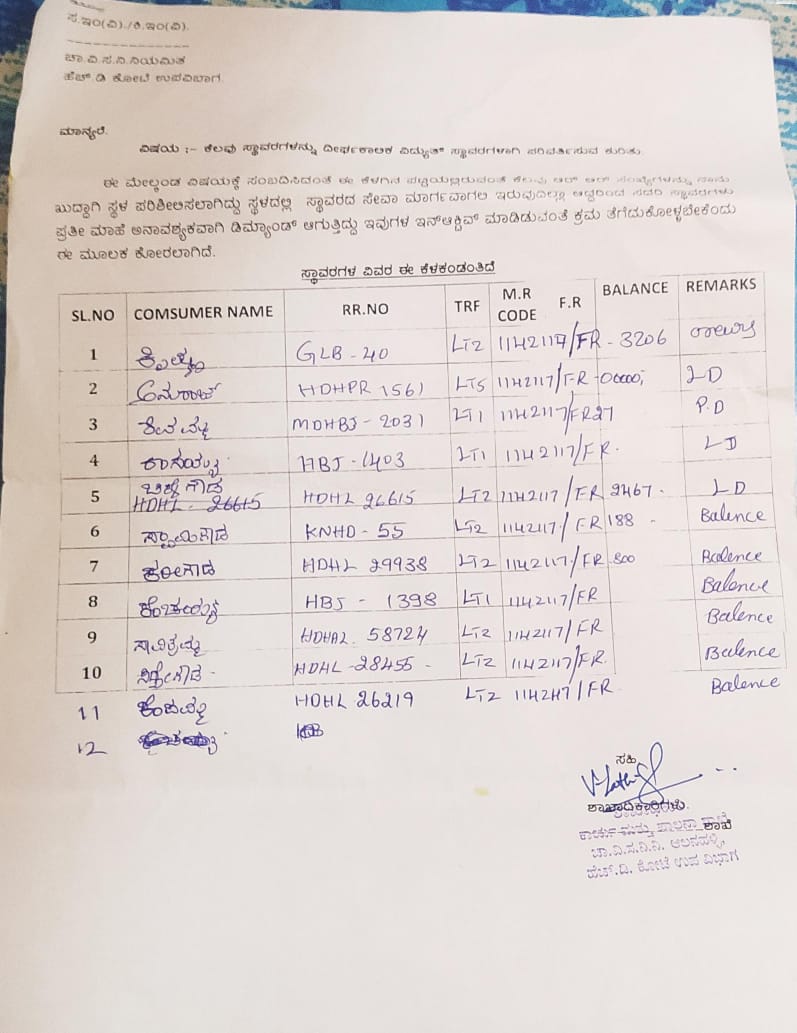 ಸ.ಇಂ(ವಿ)./ಕಿ.ಇಂ(ವಿ).
ಚಾ.ವಿ.ಸ.ನಿ.ನಿಯಮಿತ
ಹೆಚ್.ಡಿ ಕೋಟೆ ಉಪವಿಭಾಗ.
ಮಾನ್ಯರೆ.
ವಿಷಯ :- ಕೆಲವು ಸ್ಥಾವರಗಳನ್ನು ದೀರ್ಘಕಾಲಿಕ ವಿದ್ಯುತ್ ಸ್ಥಾವರಗಳಾಗಿ ಪರಿವರ್ತಿಸುವ ಕುರಿತು.
ಈ ಮೇಲ್ಕಂಡ ವಿಷಯಕ್ಕೆ ಸಂಬದಿಸಿದಂತೆ ಈ ಕೆಳಗಿನ ಪಟ್ಟಿಯಲ್ಲಿರುವಂತೆ ಕೆಲವು ಆರ್ ಆರ್ ಸಂಖ್ಯೆಗಳನ್ನು ನಾನು
ಖುದ್ದಾಗಿ ಸ್ಥಳ ಪರಿಶೀಲಿಸಲಾಗಿದ್ದು ಸ್ಥಳದಲ್ಲಿ ಸ್ಥಾವರದ ಸೇವಾ ಮಾರ್ಗವಾಗಲಿ ಇರುವುದಿಲ್ಲಾ ಆದ್ದರಿಂದ ಸದರಿ ಸ್ಥಾವರಗಳು
ಪ್ರತೀ ಮಾಹೆ ಅನಾವಶ್ಯಕವಾಗಿ ಡಿಮ್ಯಾಂಡ್ ಆಗುತ್ತಿದ್ದು ಇವುಗಳ ಇನ್ಆಕ್ಟಿವ್ ಮಾಡಿಡುವಂತೆ ಕ್ರಮ ತೆಗೆದುಕೊಳ್ಳಬೇಕೆಂದು
ಈ ಮೂಲಕ ಕೋರಲಾಗಿದೆ.
ಸ್ಥಾವರಗಳ ವಿವರ ಈ ಕೆಳಕಂಡಂತಿದೆ
SL.NO COMSUMER NAME RR.NO TRF M.R CODE F.R BALANCE REMARKS
1 GLB-40 LT2 1142117/FR - 3206
2 HDHPR 1561 LT5 1142117/FR LD
3 ಶಿವಮ್ಮ MDHBJ-2031 LT1 1142117/FR 27 P.D
4 HBJ-1403 LT1 1142117/FR. LD
5 ಚಿಕ್ಕೆಗೌಡ HDHL 26615 HDHL 26615 LT2 1142117/FR 2467 - LD
6 ಸ್ವಾಮಿಗೌಡ KNHD-55 LT2 1142117/FR 188 - Balence
7 ಕರೀಗೌಡ HDHL 29938 LT2 1142117/FR 800 Balence
8 HBJ - 1398 LT1 1142117/FR Balence
9 ಸಾವಿತ್ರಮ್ಮ HDHAL 58724 LT2 1142117/FR Balence
10 HDHL-28455 - LT2 1142117/FR. Balence
11 ಕೆಂಪಮ್ಮ HDHL 26219 LT2 1142117/FR Balence
12
ಸಹಿ
ಶಾಖಾಧಿಕಾರಿಗಳು.
ಕಾರ್ಯ ಮತ್ತು ಪಾಲನಾ ಶಾಖೆ
ಚಾ.ವಿ.ಸ.ನಿ.ನಿ. ಆಲನಹಳ್ಳಿ,
ಹೆಚ್.ಡಿ. ಕೋಟೆ ಉಪ ವಿಭಾಗ